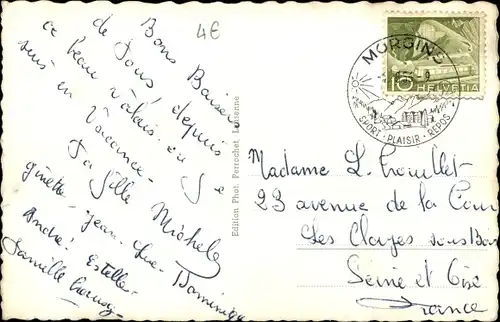 4€
Bons Baisers
de tous, depuis
ce beau Valais où je
suis en Vacance-
Ta fille Michele
Ginette - Jean-Luc - Dominique
André Estelle
famille
Edition Phot. Perrochet, Lausanne
MORGINS
SPORT · PLAISIR · REPOS
10 HELVETIA
Madame L.
23 avenue de la
Les Clayes sous Bois
Seine et Oise
France